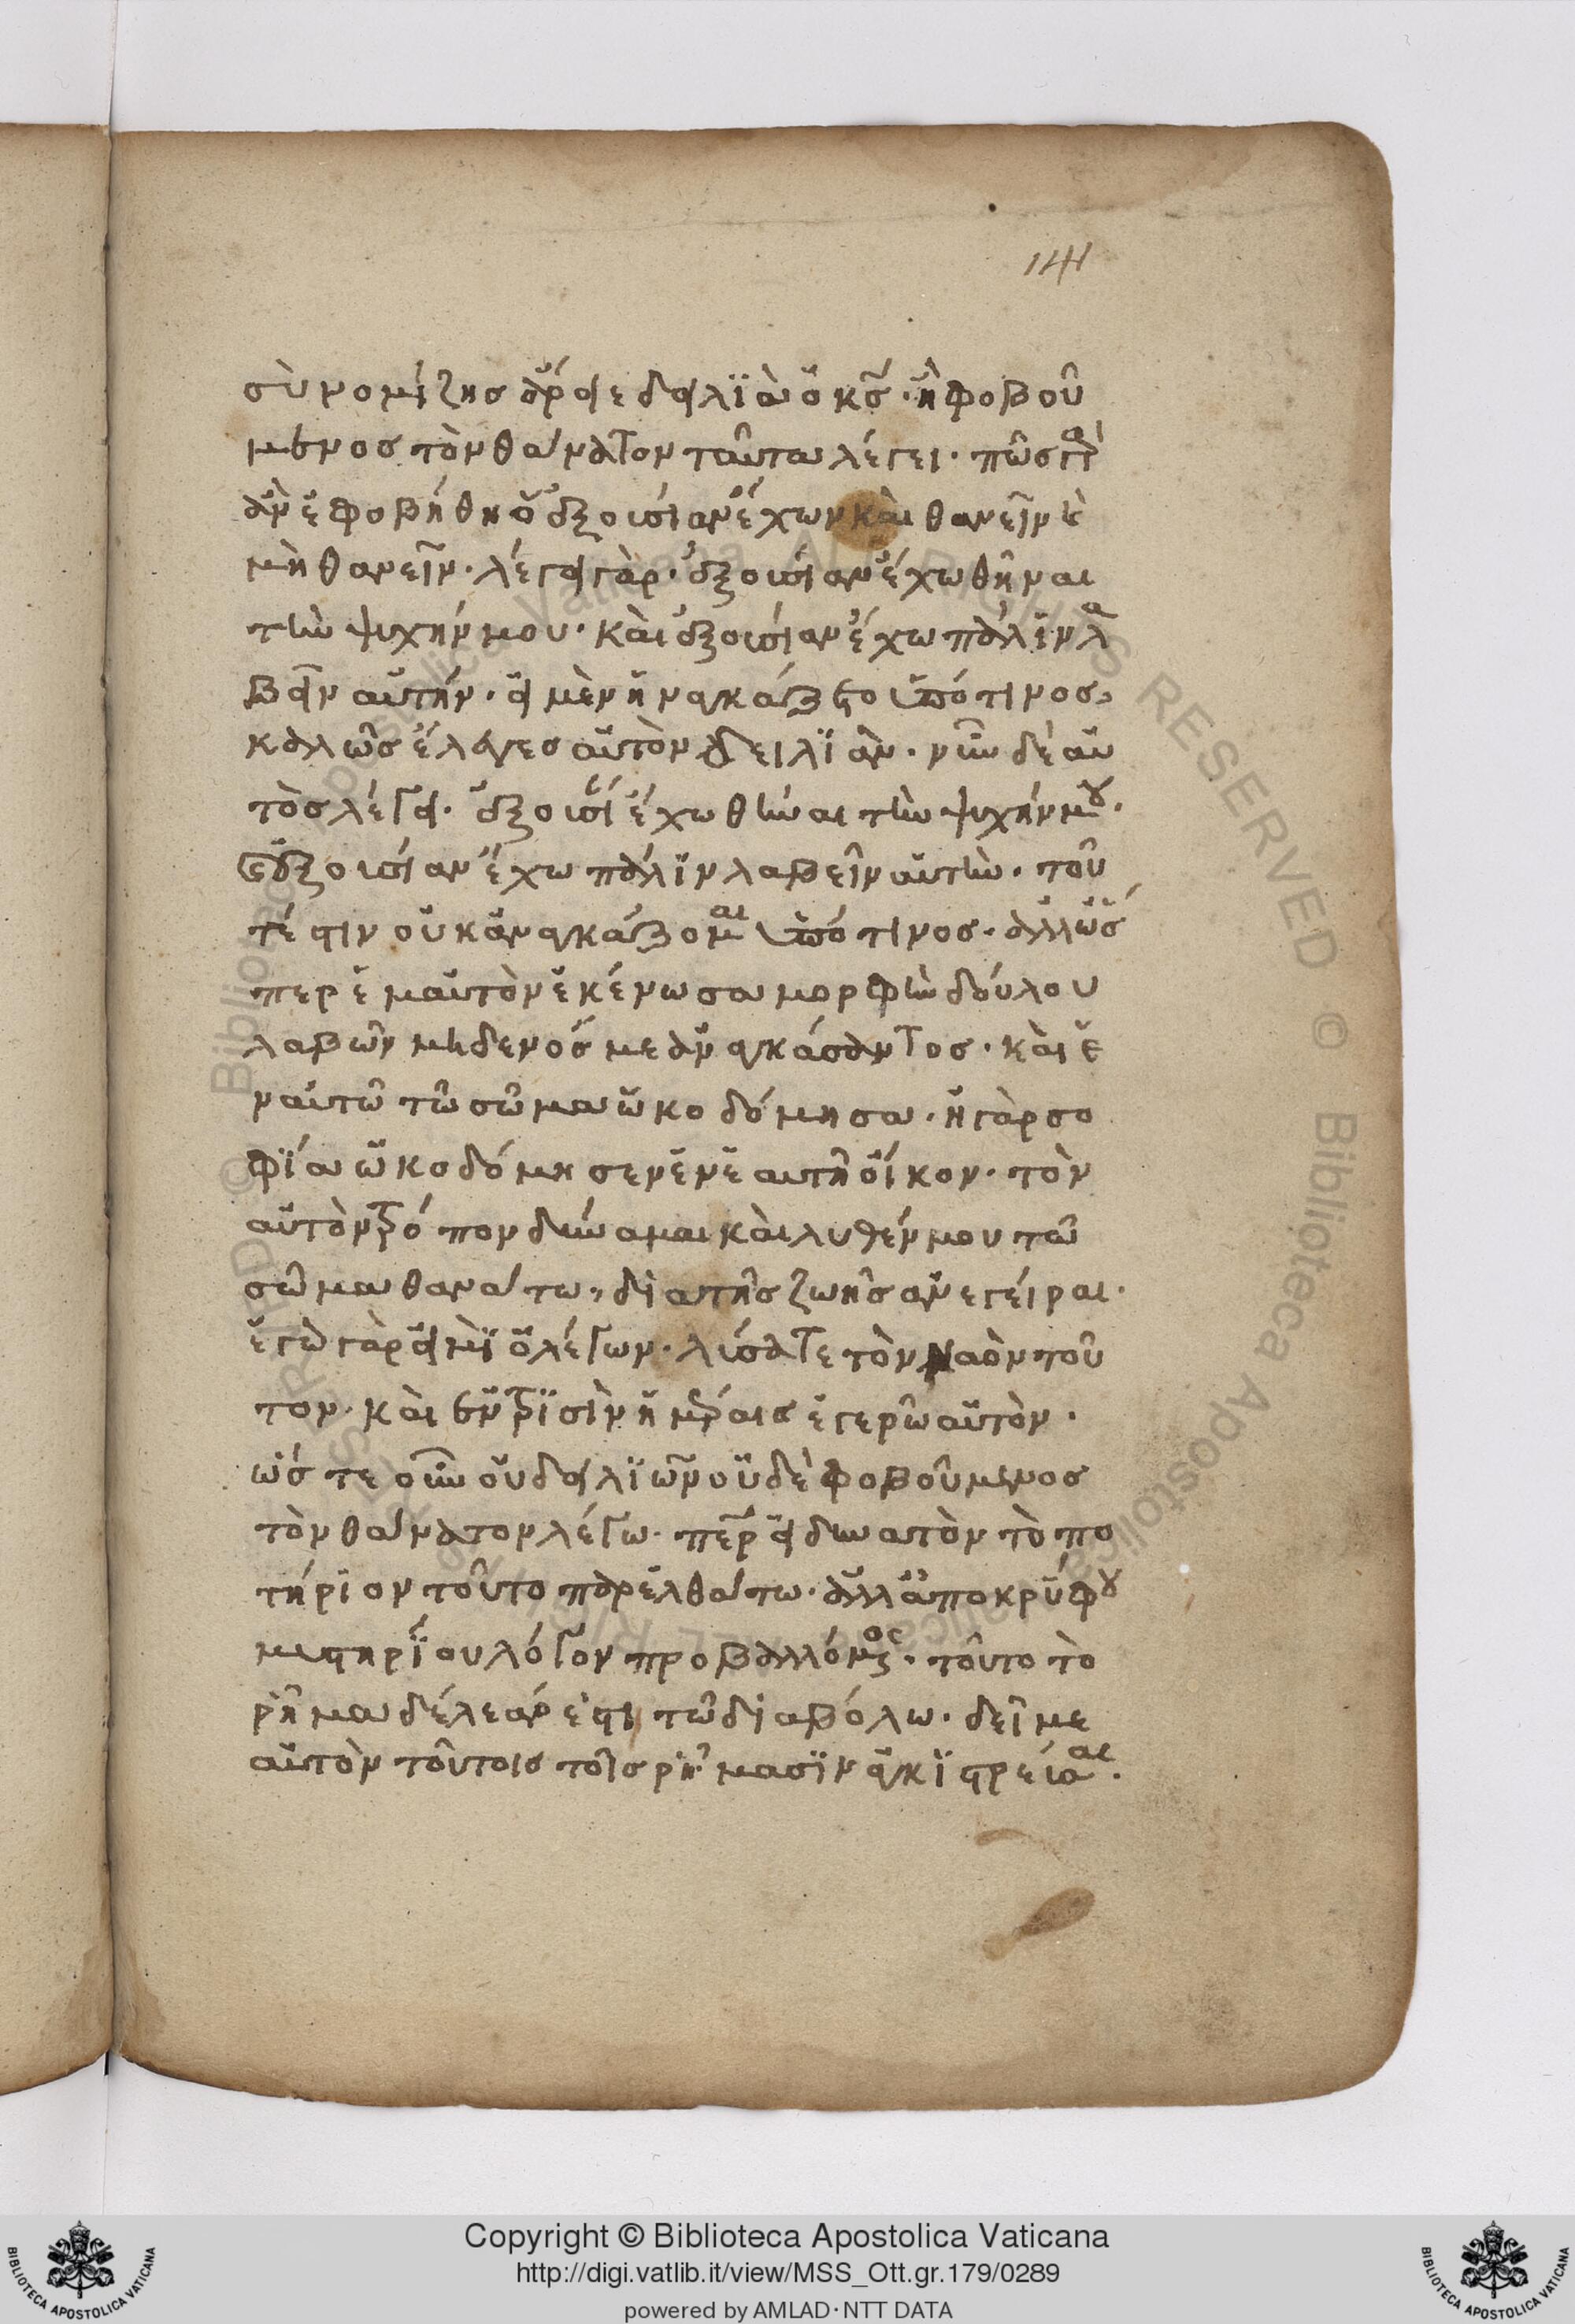 141
σὺ νομίζης ἄρα ἐδειλία ὁ κς̄. ἢ φοβού
μενος τὸν θάνατον ταῦτα λέγει. πῶς γὰρ
ἂν ἐφοβήθη ὁ ἐξουσίαν ἔχων καὶ θανεῖν κ
μὴ θανεῖν. λέγει γὰρ. ἐξουσίαν ἔχω θῆναι
τὴν ψυχήν μου. καὶ ἐξουσίαν ἔχω πάλιν λα
βεῖν αὐτήν. εἰ μὲν ἠναγκάζετο ὑπό τινος,
καλῶς ἔλεγες αὐτὸν δειλϊᾶν. νῦν δὲ αὐ
τὸς λέγει. ἐξουσί ἔχω θῆναι τὴν ψυχήν μου.
καὶ ἐξουσίαν ἔχω πάλιν λαβεῖν αὐτὴν. του
τέστιν οὐκ ἀναγκάζομαι ὑπό τινος. ἀλλ' ὥς
περ ἐμαυτὸν ἐκένωσα μορφὴν δούλου
λαβὼν μηδενός με ἀναγκάσαντος. καὶ ἐ
ναυτῶ τῶ σῶμα ὠκοδόμησα. ἡ γὰρ σο
φία ὠκοδόμησεν ἐν ἑαυτῆ οἶκον. τὸν
αὐτὸν τρόπον δύναμαι καὶ λυθέν μου τὼ
σῶμα θανάτω, διὰ τῆς ζωῆς ἀνεγεῖραι.
ἐγὼ γὰρ εἰμὶ ὁ λέγων. λύσατε τὸν ναὸν τοῦ
τον. καὶ ἐν τρισὶν ἡμέραις ἐγερῶ αὐτὸν.
ὥς τε οὖν οὐ δειλιῶν οὐδὲ φοβούμενος
τὸν θάνατον λέγω. περ εἰ δυνατὸν τὸ πο
τήριον τοῦτο παρελθάτω. ἀλλ' ἀποκρύφου
μυστηρίου λόγον προβαλλόμενος. τοῦτο τὸ
ρῆμα δέλεάρ ἐστι τῶ διαβόλω. δεῖ με
αὐτὸν τούτοις τοῖς ρήμασιν ἀγκιστρεῦσαι.
Copyright © Biblioteca Apostolica Vaticana
http://digi.vatlib.it/view/MSS_Ott.gr.179/0289
powered by AMLAD·NTT DATA